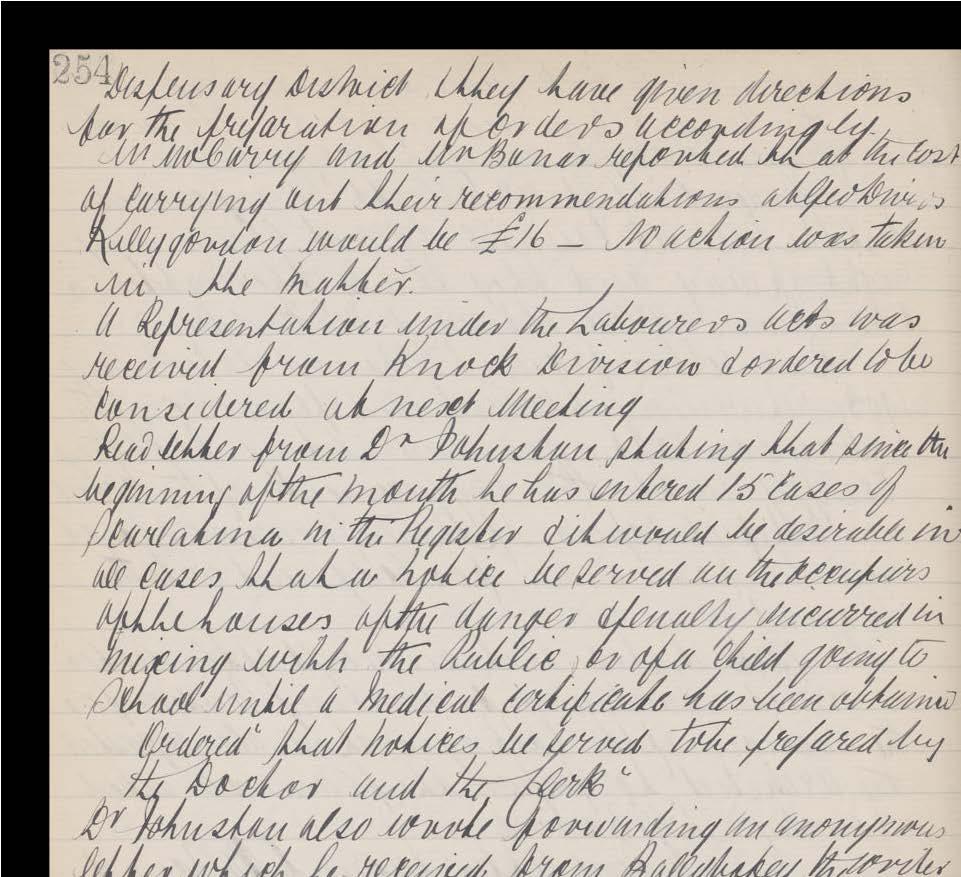 254
Dispensary District they have given directions
for the preparation of orders accordingly.
Mr McCarry and Mr reported that the cost
of carrying out their recommendations at
Killygordon would be £16 – No action was taken
in the matter.
A Representation under the Labourers Acts was
received from Knock Division & ordered to be
considered at next Meeting
Read letter from Dr Johnston stating that since the
beginning of the month he has entered 15 Cases of
Scarlatina in the Register & it would be desirable in
all cases that a notice be served on the occupiers
of the houses of the danger & penalty incurred in
mixing with the Public, or of a Child going to
School until a Medical certificate has been obtained
"Ordered" that notices be served to be prepared by
the Doctor and the Clerk"
Dr Johnston also wrote forwarding an anonymous
letter which he received from Ballybofey the writer